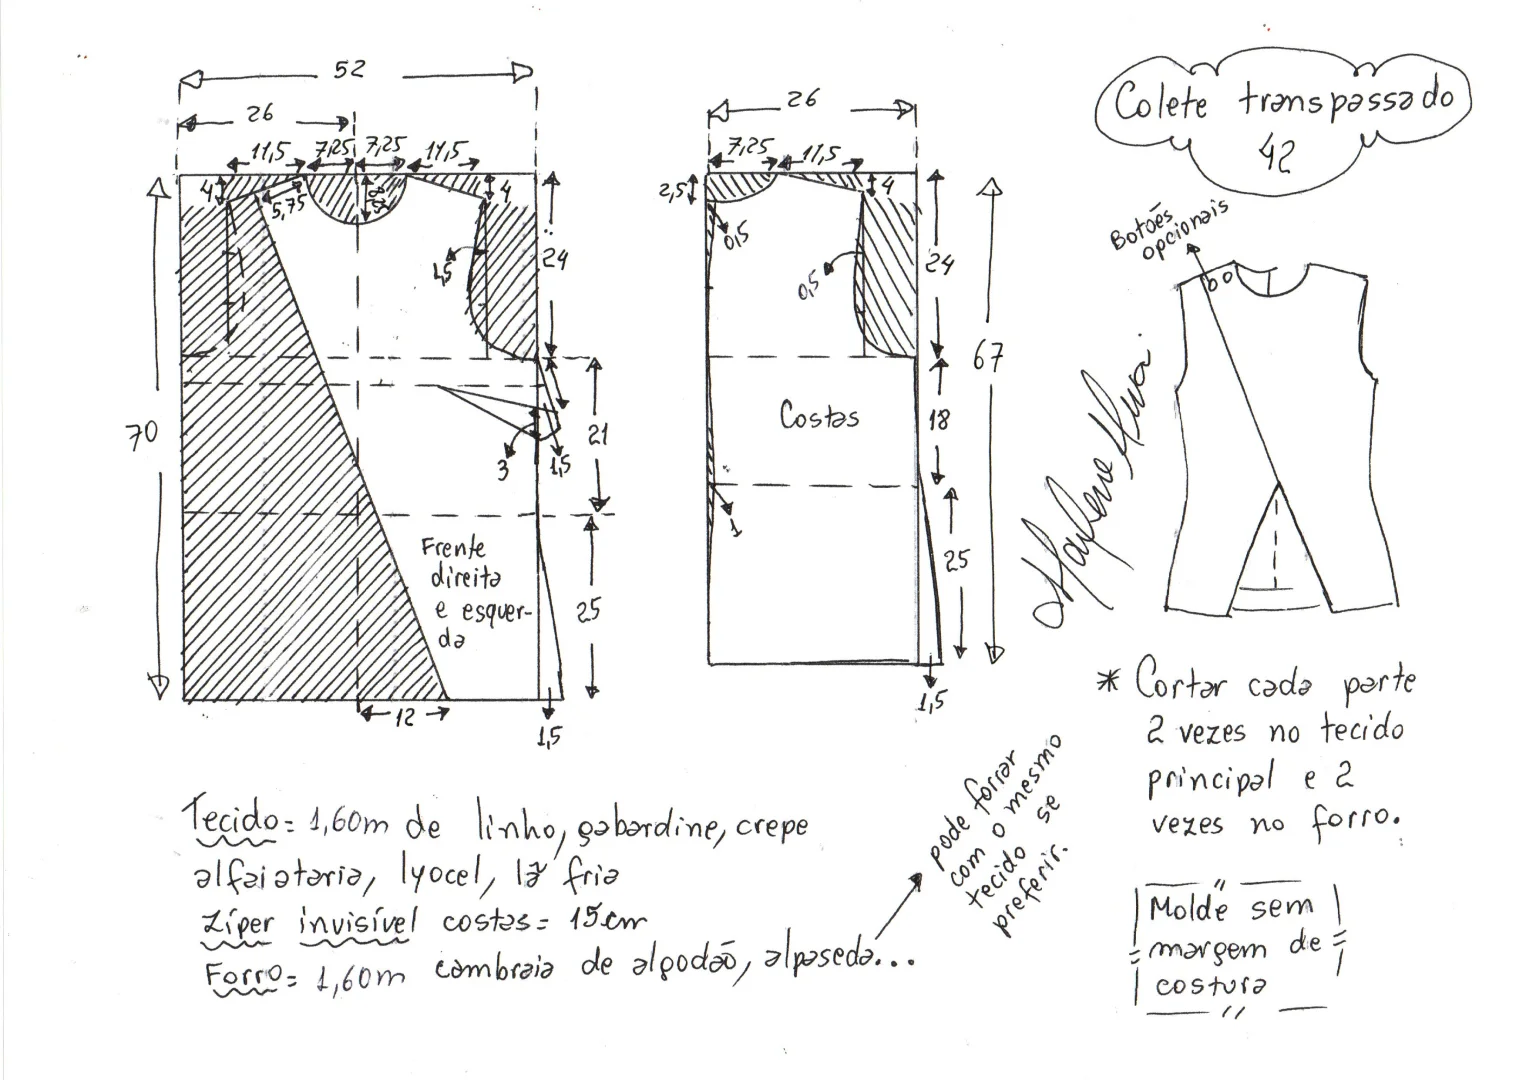 52
26
11,5 7,25 7,25 11,5
4
5,75
4
1,5
24
70
21
3
1,5
Frente
direita
e esquer-
da
25
12
1,5
26
7,25 11,5
2,5
4
0,5
0,5
24
67
Costas
18
1
25
1,5
Colete transpassado
42
Botões
opcionais
* Cortar cada parte
2 vezes no tecido
principal e 2
vezes no forro.
Molde sem
margem de
costura
Tecido= 1,60m de linho, gabardine, crepe
alfaiataria, lyocel, lã fria
Zíper invisível costas= 15cm
Forro= 1,60m cambraia de algodão, alpaseda...
pode forrar
com o mesmo
tecido se
preferir.